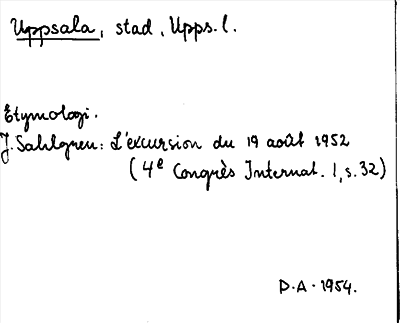 Uppsala, stad, Upps. l.
Etymologi.
J. Sahlgren: L'excursion du 19 août 1952
(4e Congrès Internat. 1, s. 32)
D.A. 1954.